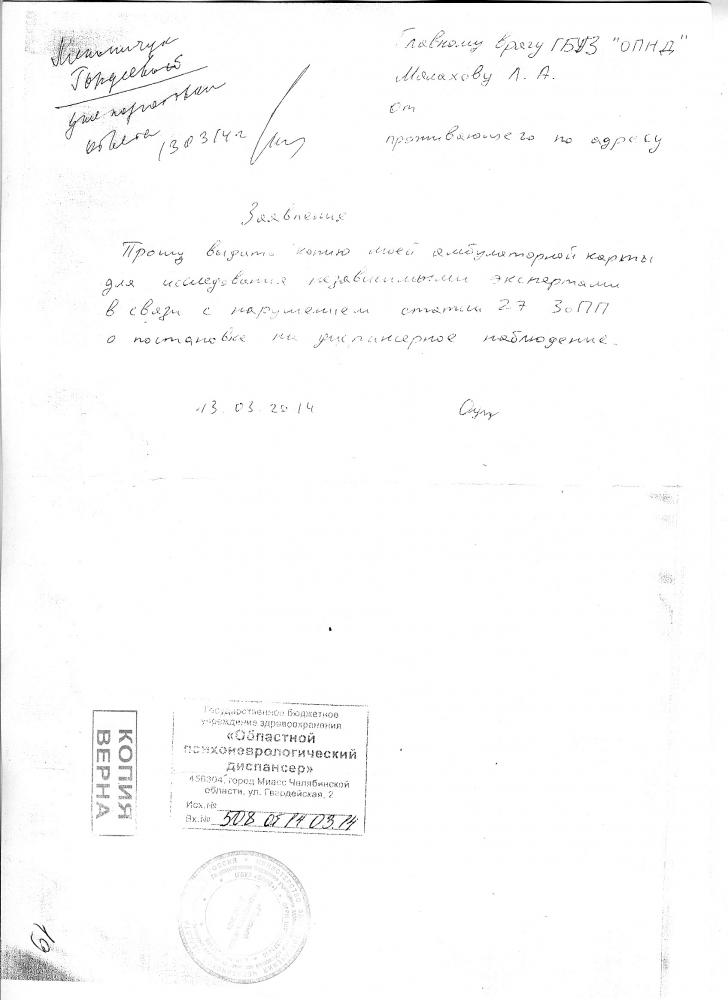 Главному врагу ГБУЗ "ОПНД"
Малахову Л. А.
от
проживающего по адресу
13 03 14 г
Заявления
Прошу выдать копию моей амбулаторной карты
для исследования независимыми экспертами
в связи с нарушением статьи 27 ЗоПП
о постановке на диспансерное наблюдение.
13.03.2014
КОПИЯ
ВЕРНА
Государственное бюджетное
учреждение здравоохранения
«Областной
психоневрологический
диспансер»
456304, город Миасс Челябинской
области, ул. Гвардейская, 2
Исх.№
Вх.№ 508 от 14.03.14
19